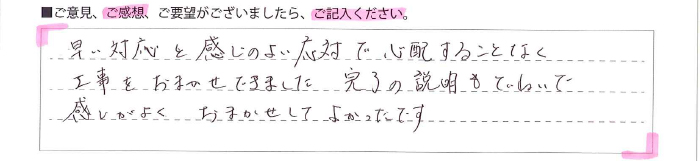 ■ご意見、ご感想、ご要望がございましたら、ご記入ください。
早い対応と感じのよい応対で心配することなく
工事をおまかせできました 完了の説明もていねいで
感じがよく おまかせしてよかったです